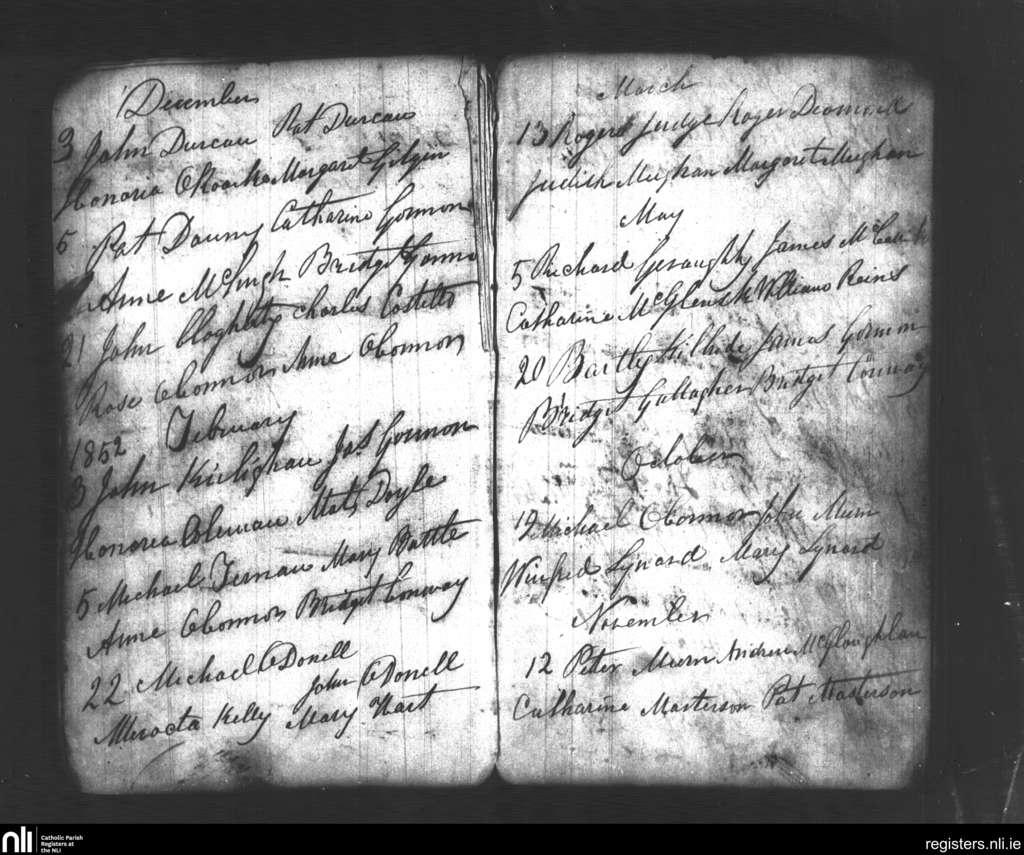 December
3 John Durcan Pat Durcan
Honoria ORoorke Margaret Gilgin
5 Pat Dauny Catharine Gormon
Anne McHugh Bridget Gormon
21 John Cloghlity Charles Costello
Rose OConnor Anne OConnor
1852 February
3 John Kirlighan Jas Gormon
Honoria Coleman Maty Doyle
5 Michael Ternan Mary Battle
Anne OConnor Bridget Conway
22 Michael ODonell
John ODonell
Kelly Mary Hart
March
13 Roger Judge Roger
Judith Meghan Margaret Meghan
May
5 Richard Geraughty James
Catharine William Rains
20 Bartly Kilbride James Gormon
Bridget Gallagher Bridget Conway
October
19 Michael OConnor John Murn
Winifred Lynard Mary Lynard
November
12 Peter Murn Andrew McGloughlan
Catharine Masterson Pat Masterson
nli Catholic Parish
Registers at
the NLI
registers.nli.ie